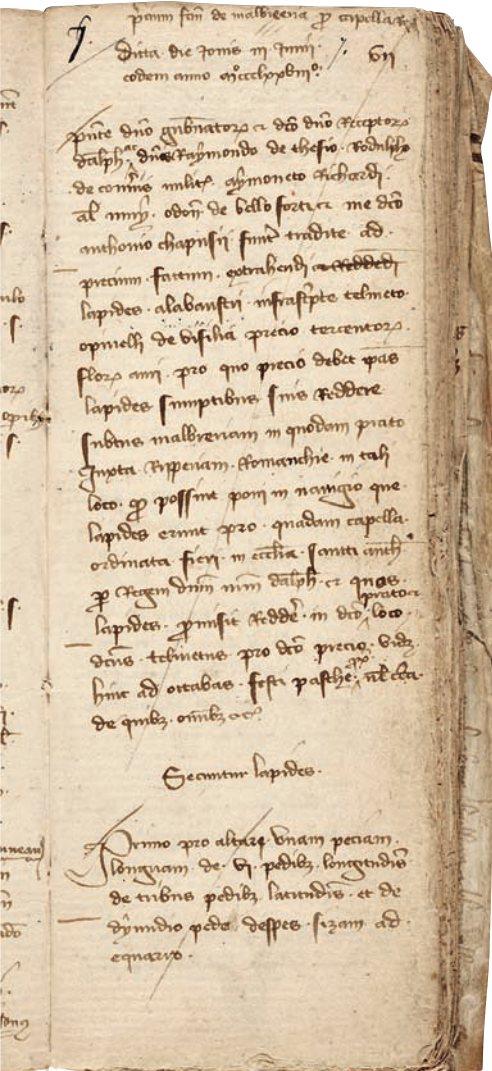 precium factum de malbreria pro capella
Dicta die Jovis iii Junii
eodem anno mºcccºlxxviiiº
vii
Presente dno gubnatore et dco dno Receptore
dalph dnos Raymondo de thesio Rodulpho
de comeriis milit aymoneto Richardi
al odon de bello forti et me dco
anthonio chapusii fuit tradite ad
precium factum extrahendi et Reddedi
lapides alabaustri infrascripte telmeto
opinelli de visilia precio tercentor
flor auri pro quo precio debet ipas
lapides sumptibus suis Reddere
subtus malbreriam in quodam prato
Juxta Ripperiam Romanchie in tali
loco q possint poni in navigio que
lapides erunt pro quadam capella
ordinata fieri in ecclia sancti anth
p Regem dnm nrm dalph et quas
lapides promisit Redde in dco prato loco
dcus telmetus pro dco precio vidz
hinc ad octabas festi pasche
de quibz omibz etc
Secuntur lapides
Primo pro altari unam peciam
longuam de vi pedibz longitudis
de tribus pedibz latitudis et de
dymidio pede despes sizam ad
equarro